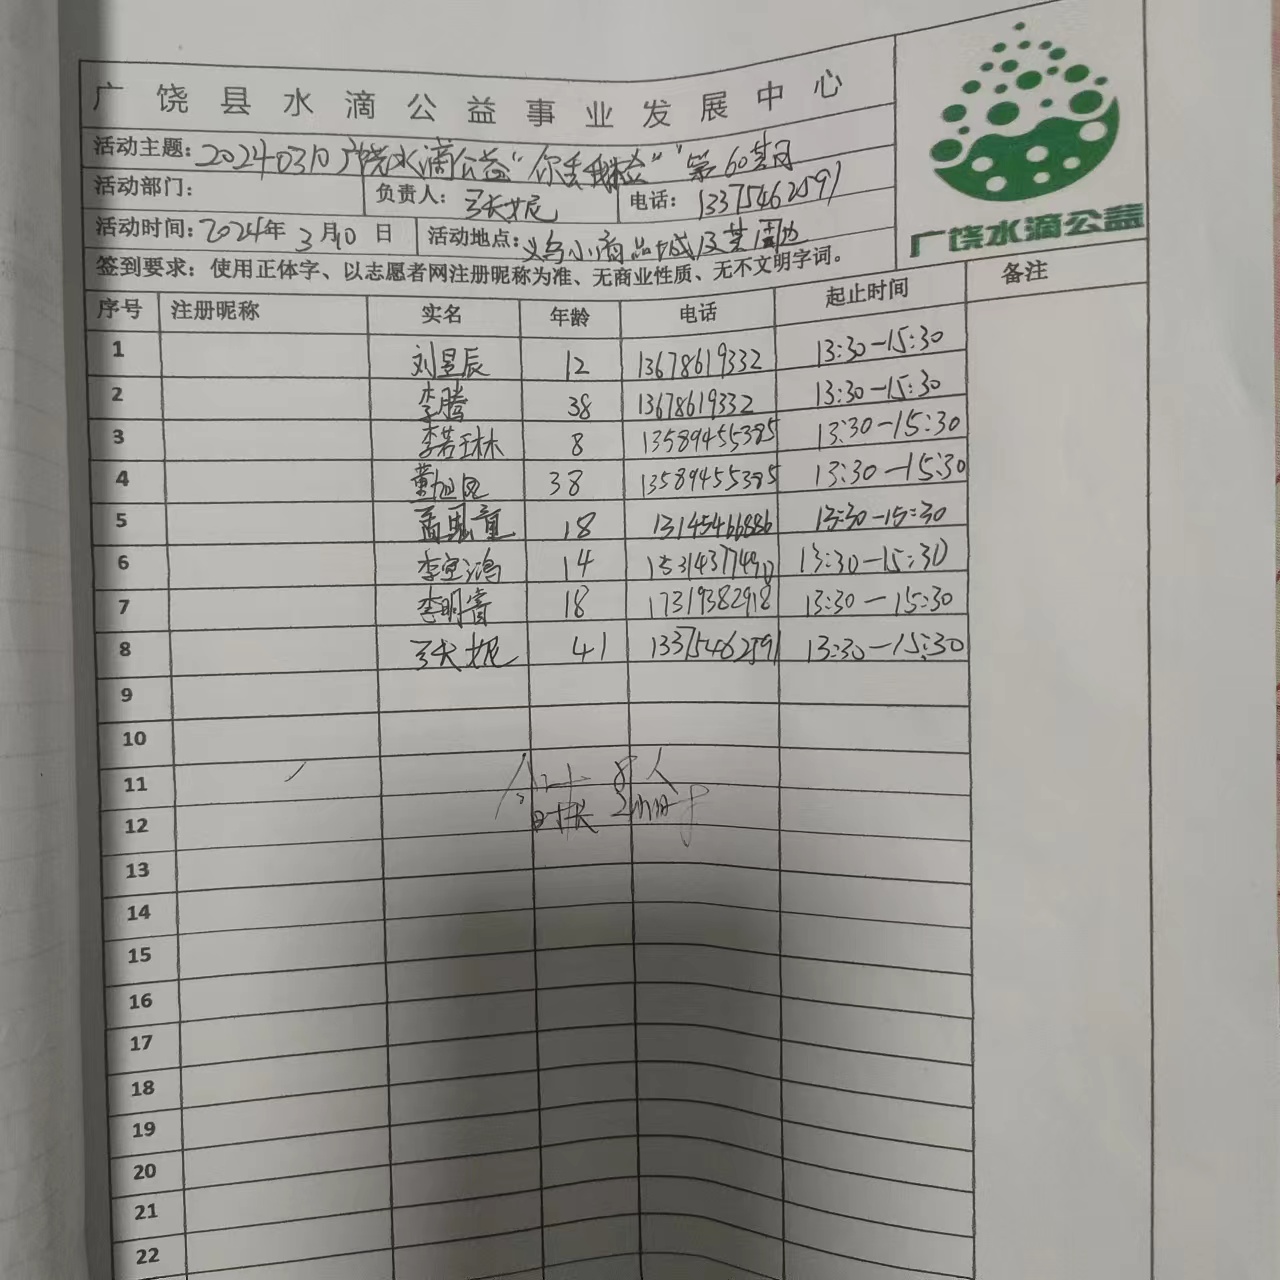 广饶县水滴公益事业发展中心
活动主题: 20240310广饶水滴公益"你丢我捡"第60期
活动部门: 负责人: 张妮 电话: 13375462591
活动时间: 2024年3月10日 活动地点: 义乌小商品城及其周边
签到要求: 使用正体字、以志愿者网注册昵称为准、无商业性质、无不文明字词。
广饶水滴公益
序号 注册昵称 实名 年龄 电话 起止时间 备注
1 刘昱辰 12 13678619332 13:30-15:30
2 李腾 38 13678619332 13:30-15:30
3 李若琳 8 13589455385 13:30-15:30
4 38 13589455385 13:30-15:30
5 孟思童 18 13145466886 13:30-15:30
6 李宜鸿 14 15314377490 13:30-15:30
7 李明 18 17319382918 13:30-15:30
8 张妮 41 13375462591 13:30-15:30
9
10
11
合计 8人
12
时长 2小时
13
14
15
16
17
18
19
20
21
22